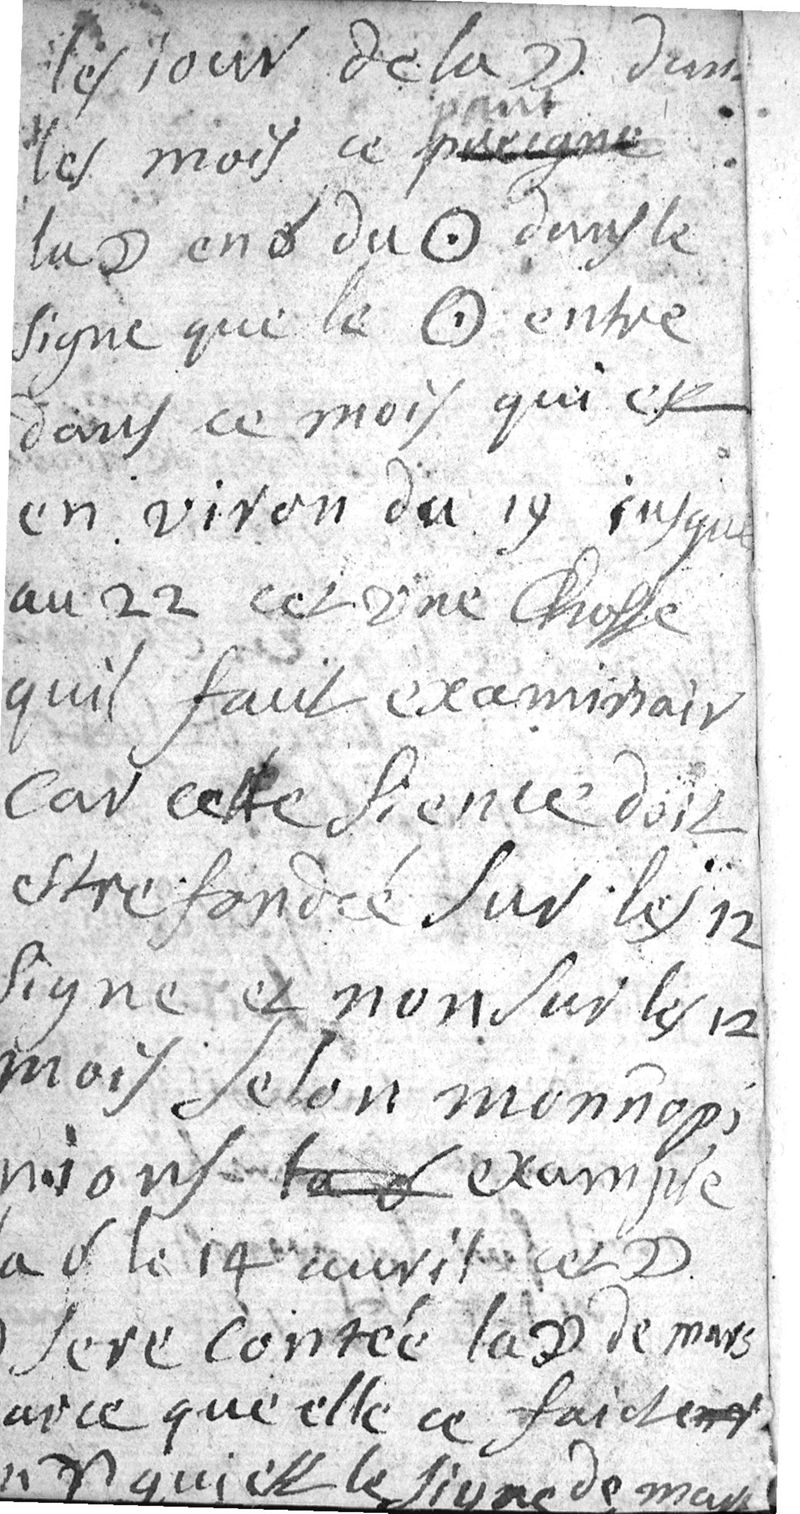 les jour de la ☽ dans
les mois ce peut
la ☽ en ☌ du ☉ dans le
signe que le ☉ entre
dans ce mois qui est
en viron du 19 jusque
au 22 cet vne Chosse
quil faut examinair
Car cette sience doit
estre fondeé sur les 12
signe et non sur les 12
mois selon monn opi
nions la ☌ example
la ☌ le 14 auvril cet ☽
sere contéé la ☽ de mars
arce que elle ce faict en
♈ qui est le signe de mars